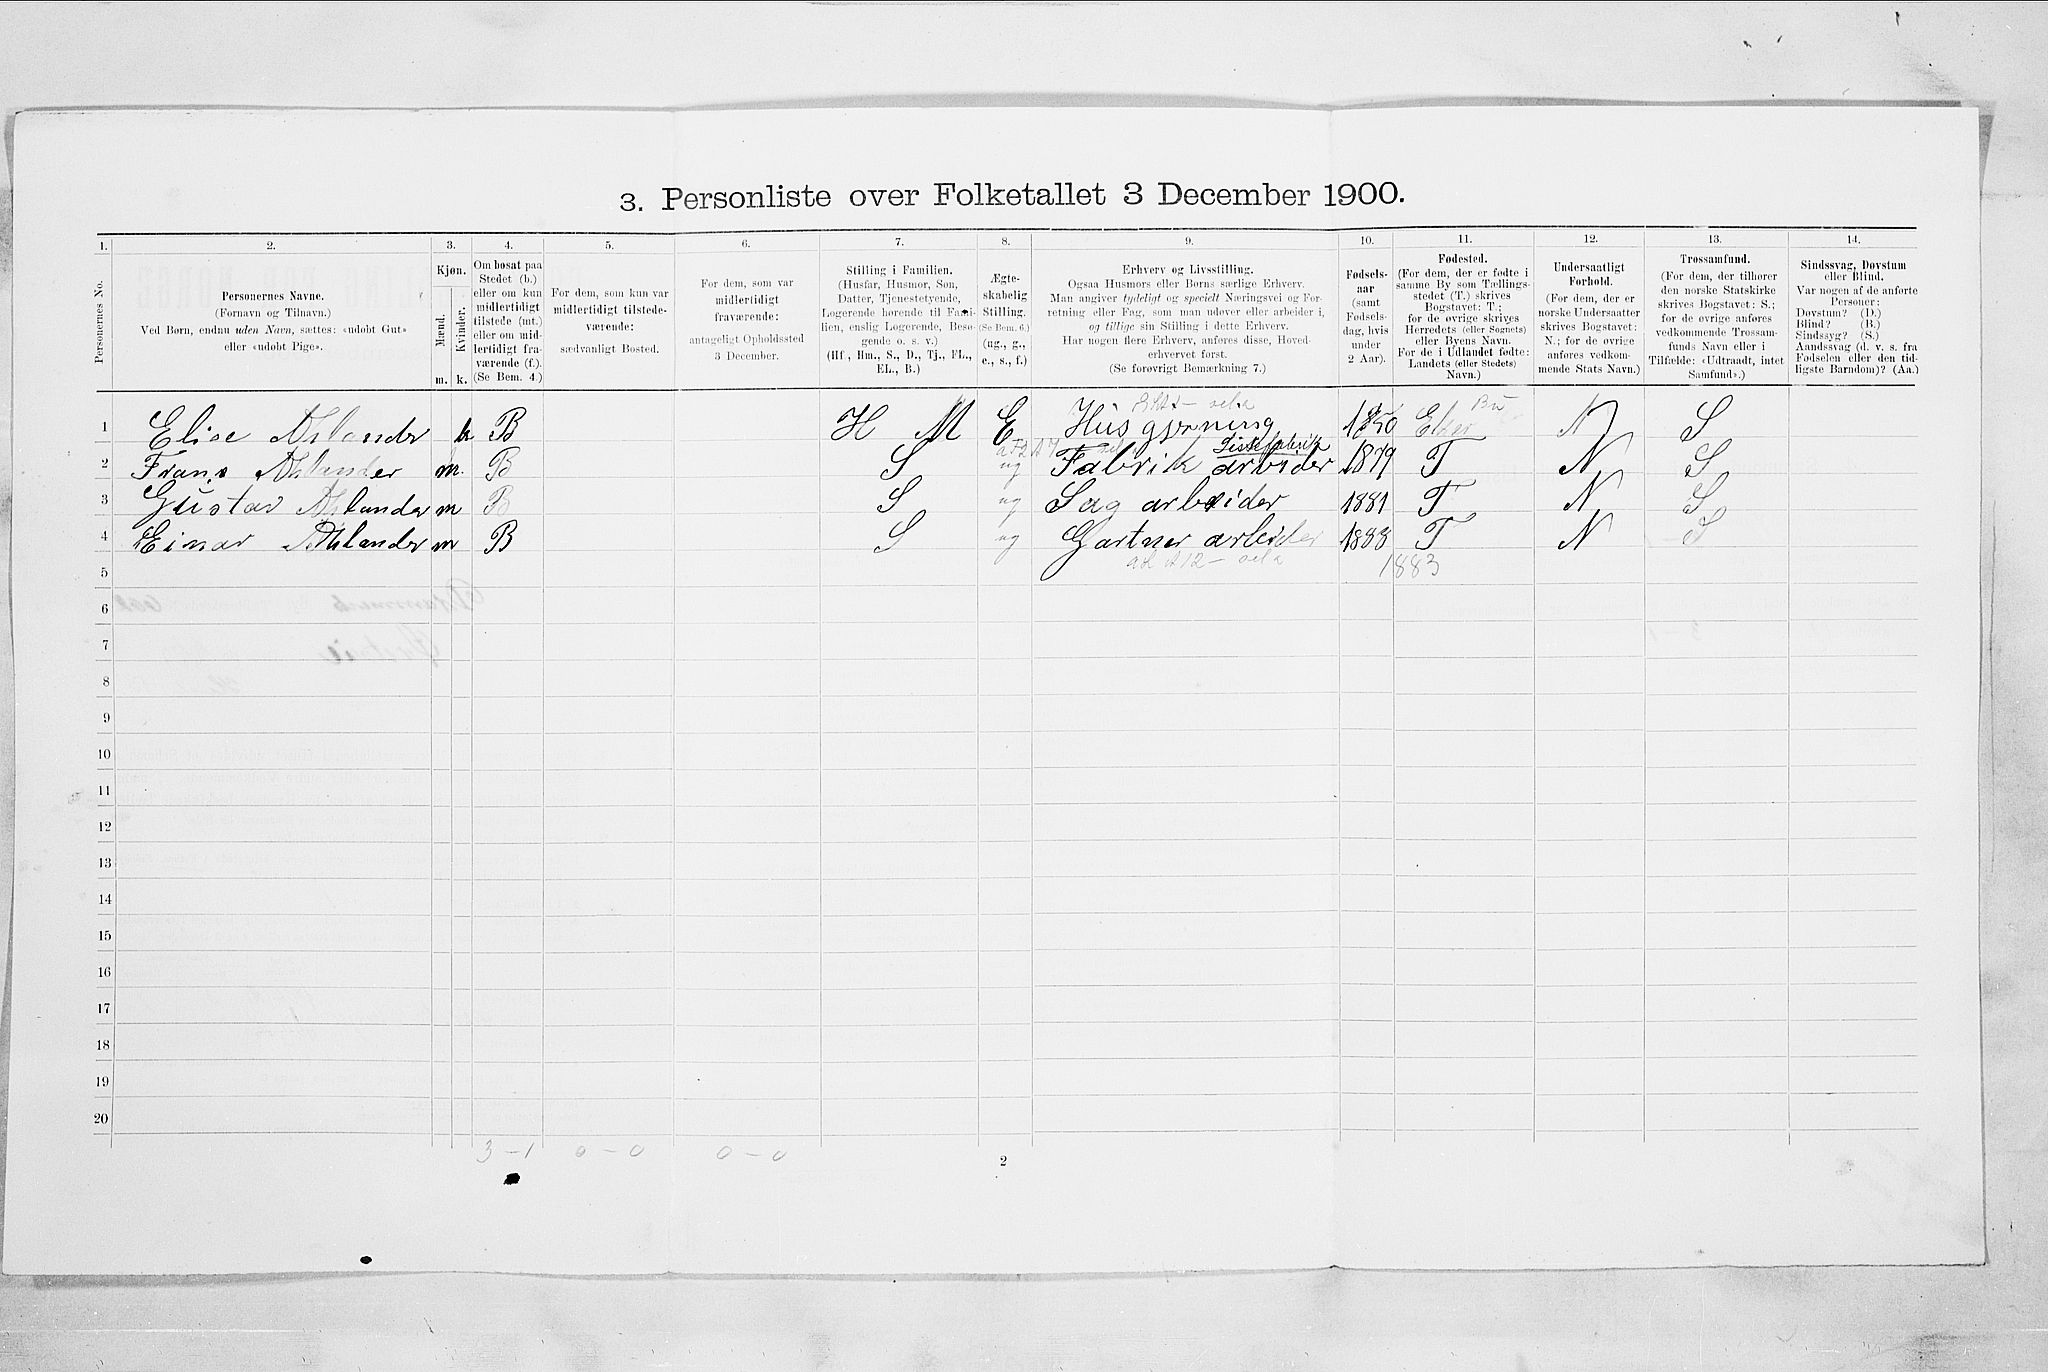 3. Personliste over Folketallet 3 December 1900.
1. 2. 3. 4. 5. 6. 7. 8. 9. 10. 11. 12. 13. 14.
Personernes No.
Personernes Navne.
(Fornavn og Tilnavn.)
Ved Børn, endnu uden Navn, sættes: «udøbt Gut»
eller «udøbt Pige».
Kjøn.
Mænd. Kvinder.
m. k.
Om bosat paa
Stedet (b.)
eller om kun
midlertidigt
tilstede (mt.)
eller om mid-
lertidigt fra-
værende (f.).
(Se Bem. 4.)
For dem, som kun var
midlertidigt tilstede-
værende:
sædvanligt Bosted.
For dem, som var
midlertidigt
fraværende:
antageligt Opholdssted
3 December.
Stilling i Familien.
(Husfar, Husmor, Søn,
Datter, Tjenestetyende,
Logerende hørende til Fami-
lien, enslig Logerende, Besø-
gende o. s. v.)
(Hf., Hm., S., D., Tj., FL.,
EL., B.)
Ægte-
skabelig
Stilling.
(Se Bem. 6.)
(ug., g.,
e., s., f.)
Erhverv og Livsstilling.
Ogsaa Husmors eller Børns særlige Erhverv.
Man angiver tydeligt og specielt Næringsvei og For-
retning eller Fag, som man udøver eller arbeider i,
og tillige sin Stilling i dette Erhverv.
Har nogen flere Erhverv, anføres disse, Hoved-
erhvervet først.
(Se forøvrigt Bemærkning 7.)
Fødsels-
aar
(samt
Fødsels-
dag, hvis
under
2 Aar).
Fødested.
(For dem, der er fødte i
samme By som Tællings-
stedet (T.) skrives
Bogstavet: T.;
for de øvrige skrives
Herredets (eller Sognets)
eller Byens Navn.
For de i Udlandet fødte:
Landets (eller Stedets)
Navn.)
Undersaatligt
Forhold.
(For dem, der er
norske Undersaatter
skrives Bogstavet:
N.; for de øvrige
anføres vedkom-
mende Stats Navn.)
Trossamfund.
(For dem, der tilhører
den norske Statskirke
skrives Bogstavet: S.;
for de øvrige anføres
vedkommende Trossam-
funds Navn eller i
Tilfælde: «Udtraadt, intet
Samfund».)
Sindssvag, Døvstum
eller Blind.
Var nogen af de anførte
Personer:
Døvstum? (D.)
Blind? (B.)
Sindssyg? (S.)
Aandssvag (d. v. s. fra
Fødselen eller den tid-
ligste Barndom)? (Aa.)
1 Elise Ahlander k B H M E Hus gjerning 1850 N S
2 Frans Ahlander m. B S ug Fabrik arbider 1879 T N S
3 Gustav Ahlander m B S ug Sag arbeider 1881 T N S
4 Einar Ahlander m B S ug Gartner arbeider 1883 T N S
5 1883
6
7
8
9
10
11
12
13
14
15
16
17
18
19
20
3 - 1 0 - 0 0 - 0
2